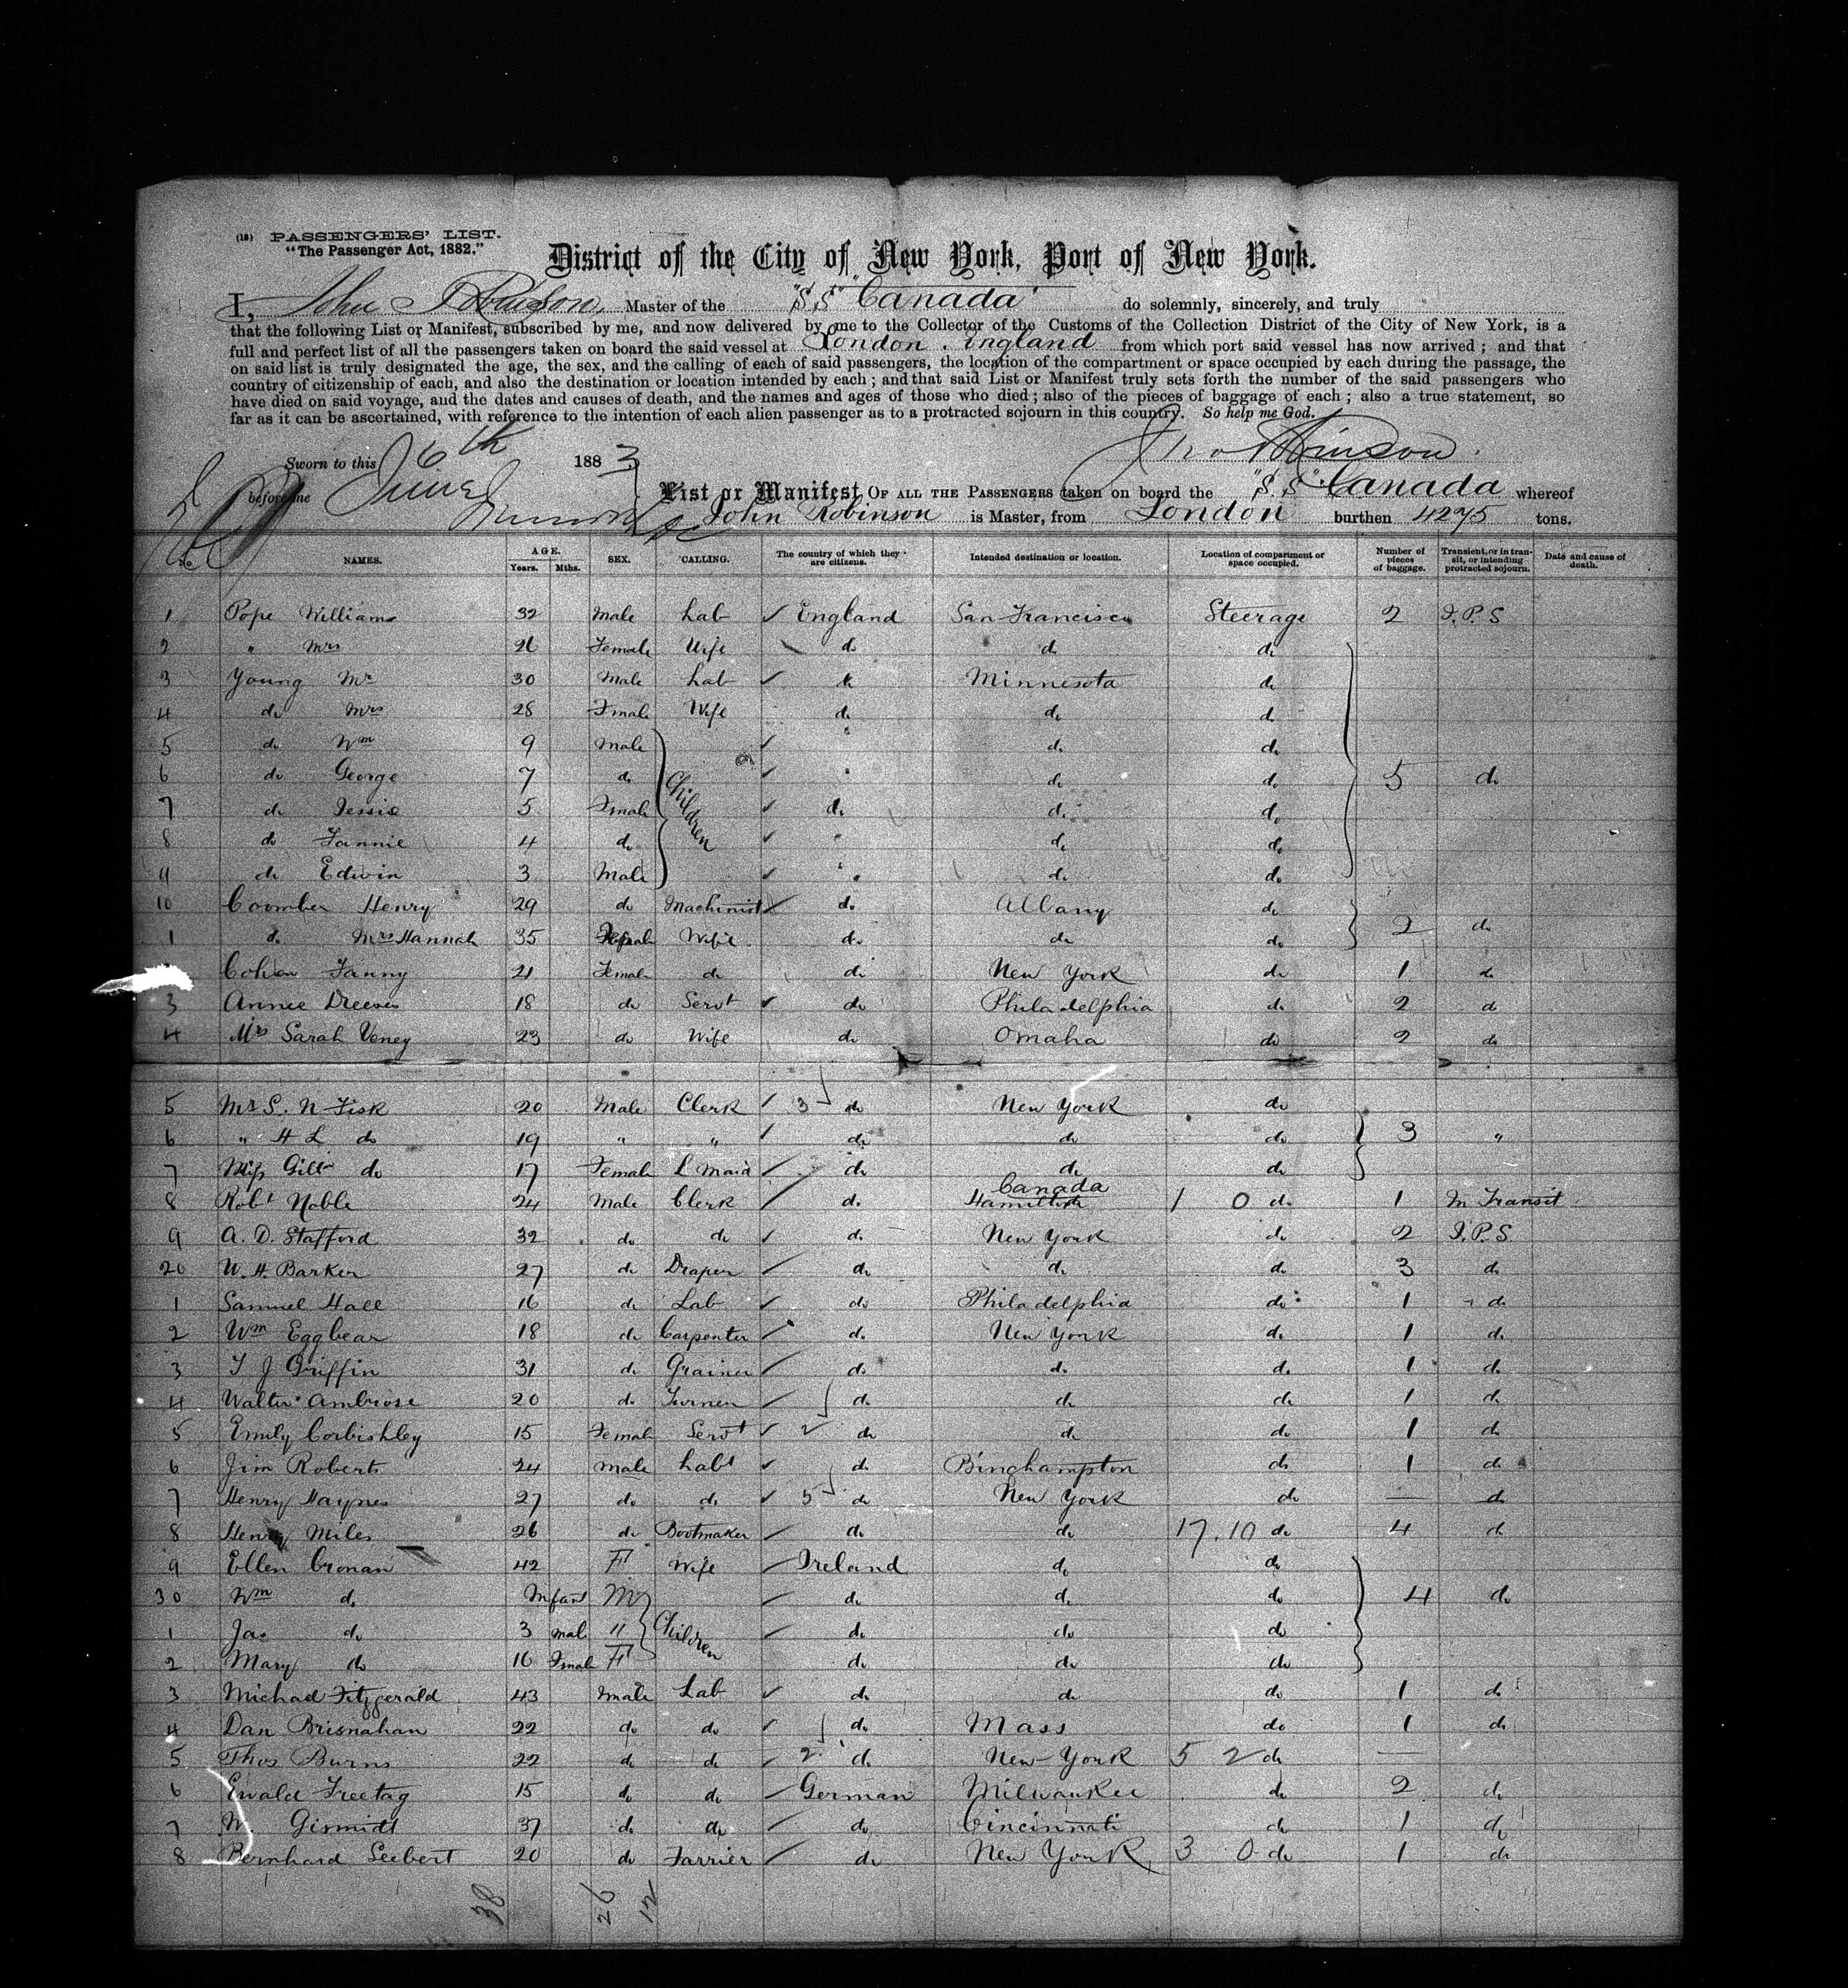 (18) PASSENGERS' LIST.
"The Passenger Act, 1882."
District of the City of New York, Port of New York.
I, John Robinson, Master of the "S.S" "Canada" do solemnly, sincerely, and truly
that the following List or Manifest, subscribed by me, and now delivered by me to the Collector of the Customs of the Collection District of the City of New York, is a
full and perfect list of all the passengers taken on board the said vessel at London. England from which port said vessel has now arrived; and that
on said list is truly designated the age, the sex, and the calling of each of said passengers, the location of the compartment or space occupied by each during the passage, the
country of citizenship of each, and also the destination or location intended by each; and that said List or Manifest truly sets forth the number of the said passengers who
have died on said voyage, and the dates and causes of death, and the names and ages of those who died; also of the pieces of baggage of each; also a true statement, so
far as it can be ascertained, with reference to the intention of each alien passenger as to a protracted sojourn in this country. So help me God.
Jno Robinson.
Sworn to this 6th 1883
before me June
List or Manifest OF ALL THE PASSENGERS taken on board the "S.S" "Canada whereof
John Robinson is Master, from London burthen 4275 tons.
No NAMES. AGE. Years. Mths. SEX. CALLING. The country of which they are citizens. Intended destination or location. Location of compartment or space occupied. Number of pieces of baggage. Transient, or in transit, or intending protracted sojourn. Date and cause of death.
1 Pope Williams 32 Male Lab England San Francisco Steerage 2 I.P.S
2 " Mrs 26 Female Wife do do do
3 Young Mr 30 Male Lab do Minnesota do
4 do Mrs 28 Fmale Wife do do do
5 do Wm 9 Male " do do
6 do George 7 do Children " do do 5 do
7 do Jessie 5 Fmale do do do
8 do Fannie 4 do " do do
9 do Edwin 3 Male " do do
10 Coomber Henry 29 do Machinist do Albany do
1 do Mrs Hannah 35 Wife do do do 2 do
Cohen Fanny 21 Female do do New York do 1 do
3 Annee Dreeves 18 do Servt do Philadelphia do 2 do
4 Mrs Sarah Veney 23 do Wife do Omaha do 2 do
5 Mr S. N Fisk 20 Male Clerk 3 do New York do
6 " H L do 19 " " do do do 3 "
7 Miss do 17 Female L Maid do do do
8 Robt Noble 24 Male Clerk do Canada Hamilton 1 0 do 1 In Transit
9 A. D. Stafford 32 do do do New York do 2 I.P.S
20 W. H. Barker 27 do Draper do do do 3 do
1 Samuel Hall 16 do Lab do Philadelphia do 1 do
2 Wm Eggbear 18 do Carpenter do New York do 1 do
3 T J Griffin 31 do Grainer do do do 1 do
4 Walter Ambrose 20 do Turner do do do 1 do
5 Emily Corbishley 15 Female Servt 2 do do do 1 do
6 Jim Roberts 24 Male Labr do Binghampton do 1 do
7 Henry Haynes 27 do do 5 do New York do — do
8 Henry Miles 26 do Bootmaker do do 17.10 do 4 do
9 Ellen Cronan 42 F Wife Ireland do do
30 Wm do Infant M do do do 4 do
1 Jas do 3 mal " Children do do do
2 Mary do 16 Fmale F do do do
3 Michael Fitzgerald 43 Male Lab do do do 1 do
4 Dan Brisnahan 22 do do do Mass do 1 do
5 Thos Burns 22 do do 2 do New-York 5 2 do —
6 Ewald Freetag 15 do do German Milwaukee do 2 do
7 W. Gismidt 37 do do do Cincinnati do 1 do
8 Bernhard Seebert 20 do Farrier do New York 3 0 do 1 do
38 26 12